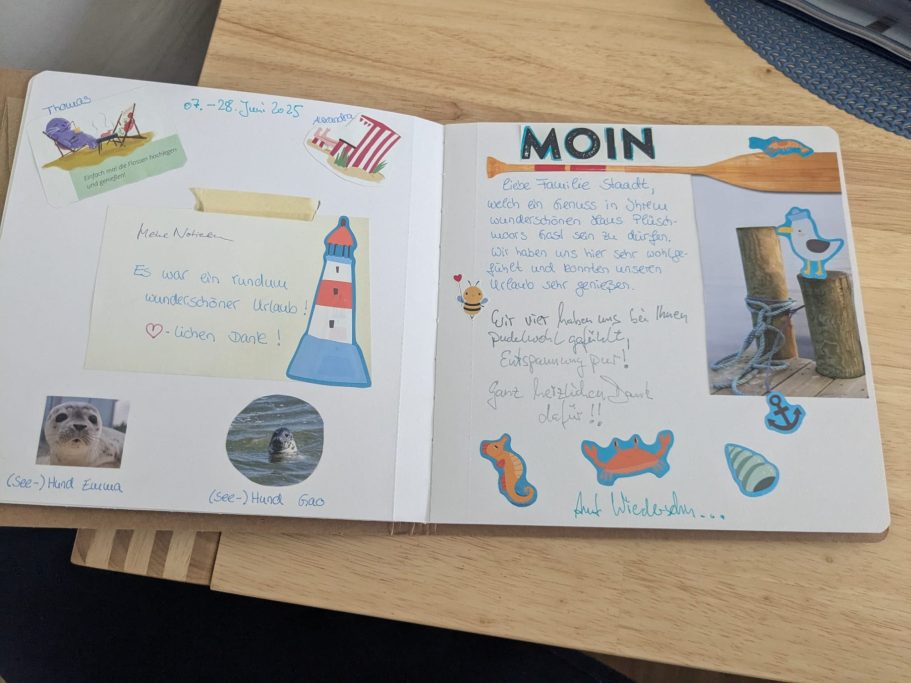 Thomas
07. – 28. Juni 2025
Alexandra
Einfach mal die Flossen hochlegen
und genießen!
Meine Notizen
Es war ein rundum
wunderschöner Urlaub!
♡-lichen Dank!
(See-)Hund Emma
(See-)Hund
MOIN
Liebe Familie Staadt,
welch ein Genuss in Ihrem
wunderschönen Haus Plüsch-
moors Gast sein zu dürfen.
Wir haben uns hier sehr wohlge-
fühlt und konnten unseren
Urlaub sehr genießen.
Wir vier haben uns bei Ihnen
pudelwohl gefühlt,
Entspannung pur!
Ganz herzlichen Dank
dafür!!
Auf Wiedersehn...